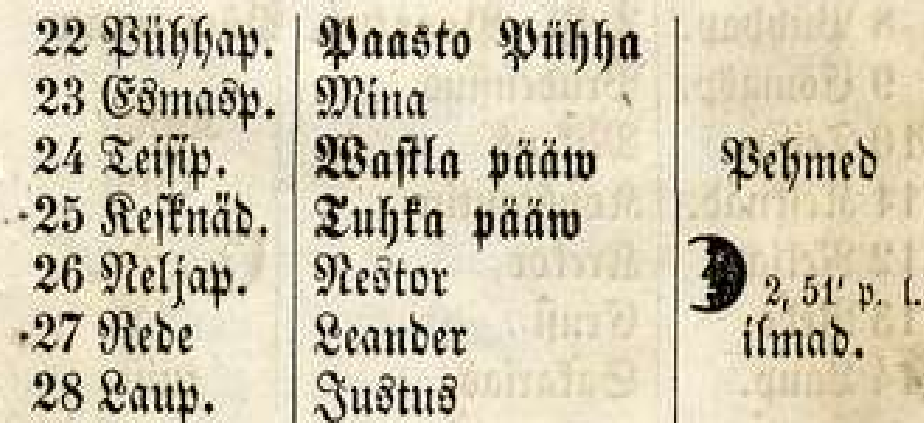 22 Pühhap. Paasto Pühha
23 Esmasp. Mina
24 Teisip. Wastla pääw Pehmed
25 Kesknäd. Tuhka pääw
26 Neljap. Nestor 2, 51' p. l.
27 Rede Leander ilmad.
28 Laup. Justus